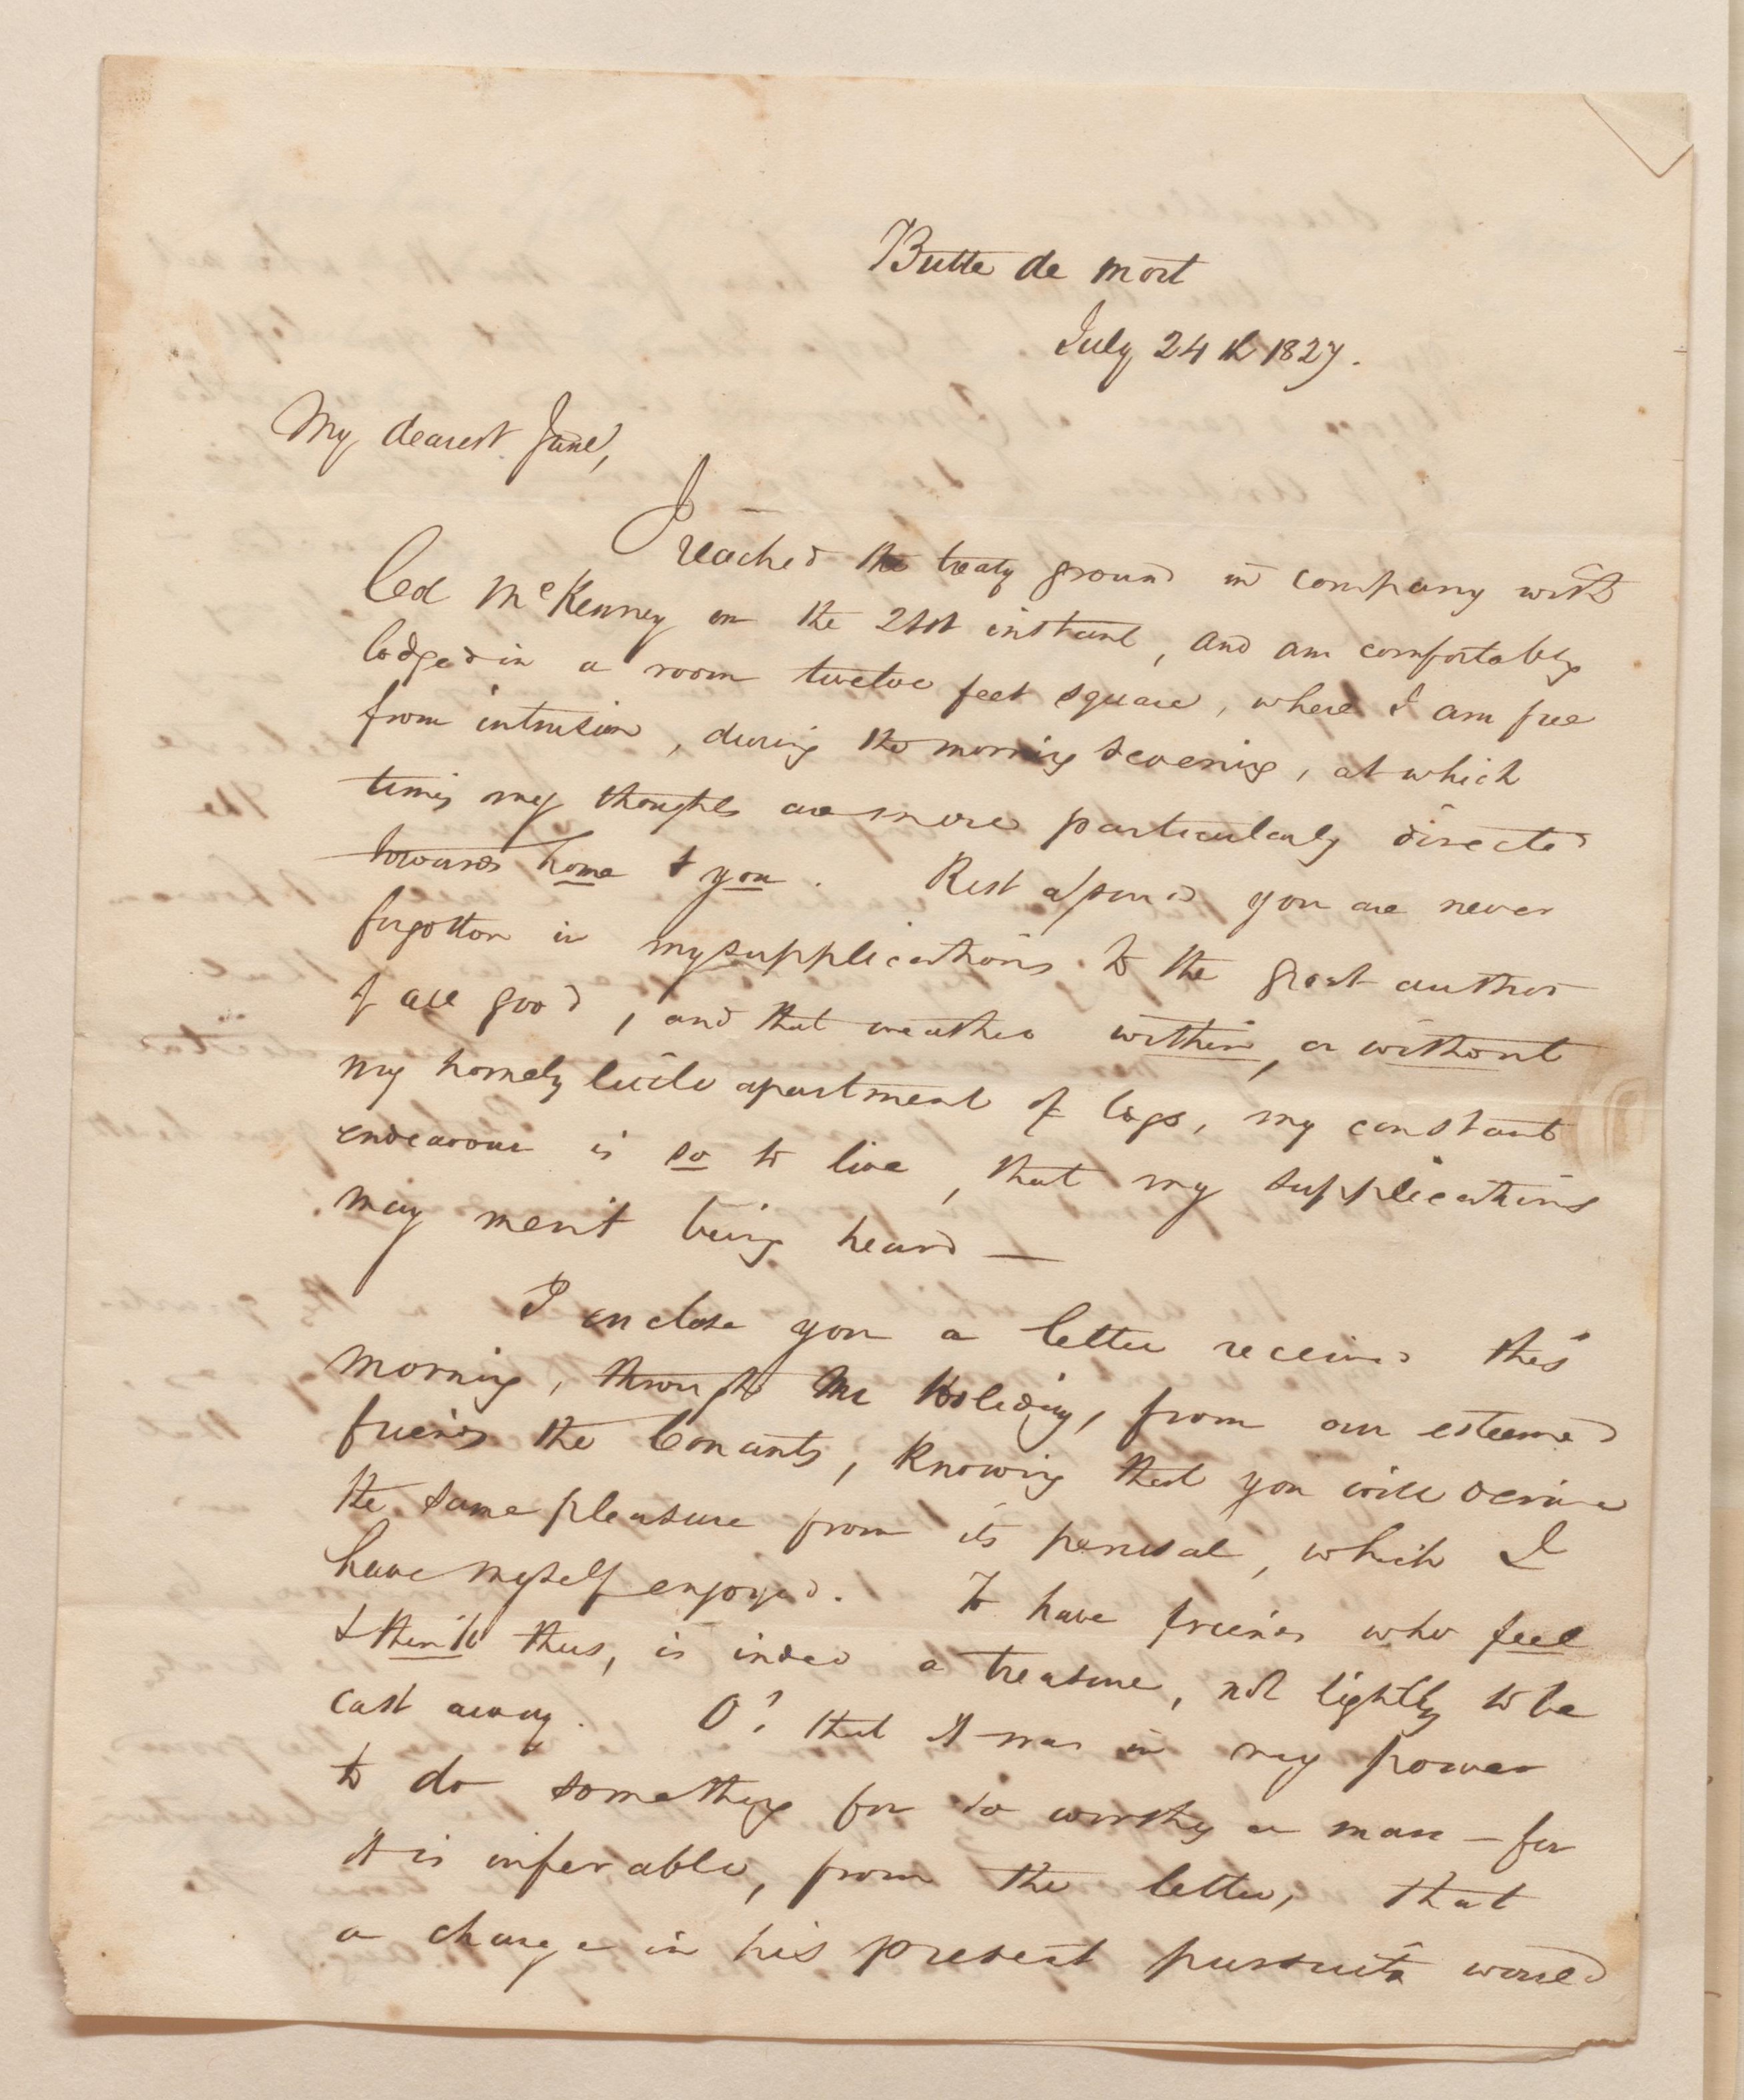 Butte de mort
July 24th 1827.
My dearest Jane,
I reached the treaty ground in company with
Col McKenney on the 21st instant, and am comfortably
lodged in a room twelve feet square, where I am free
from intrusion, during the morning & evening, at which
times my thoughts are more particularly directed
towards home & you. Rest assured you are never
forgotton in my supplications to the great author
of all good, and that weather within, or without
my homely little apartment of logs, my constant
endeavour is so to live, that my supplications
may merit being heard —
I enclose you a letter received this
morning, through Mr Holiday, from our esteemed
friends the Conants, knowing that you will derive
the same pleasure from its perusal, which I
have myself enjoyed. To have friends who feel
& think thus, is indeed a treasure, not lightly to be
cast away. O! that it was in my power
to do something for so worthy a man – for
it is inferable, from the letter, that
a change in his present pursuits would